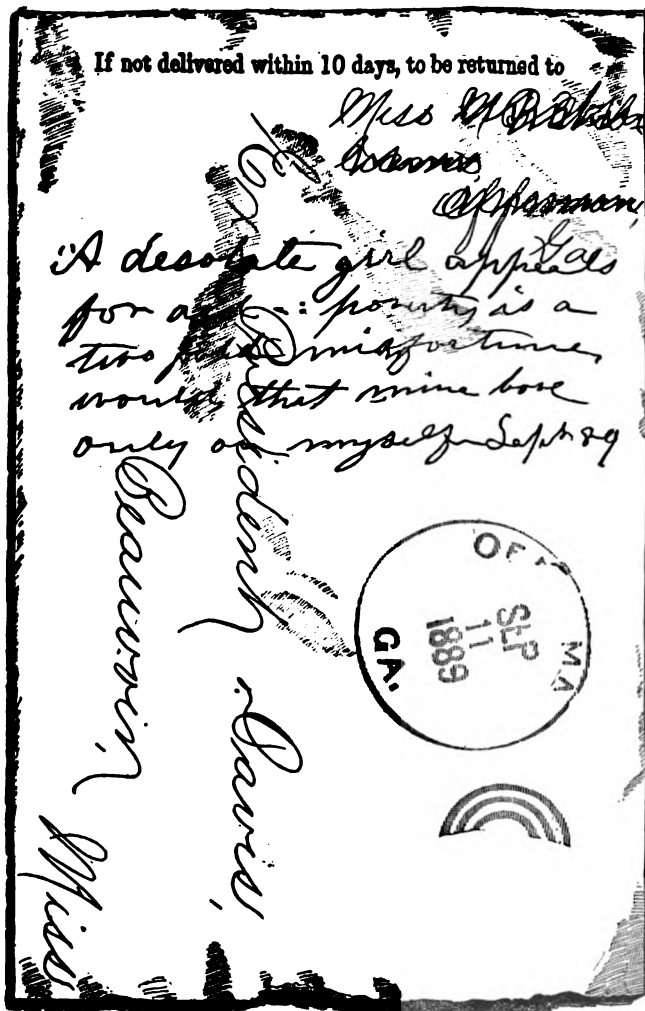 If not delivered within 10 days, to be returned to
Miss
Ga
"A desolate girl appeals
for aid -: poverty is a
two fold misfortune,
would that mine bore
only on myself Sept 89
Ex President Davis,
Beauvoir,
Miss
OFF
MA
SEP
11
1889
GA.